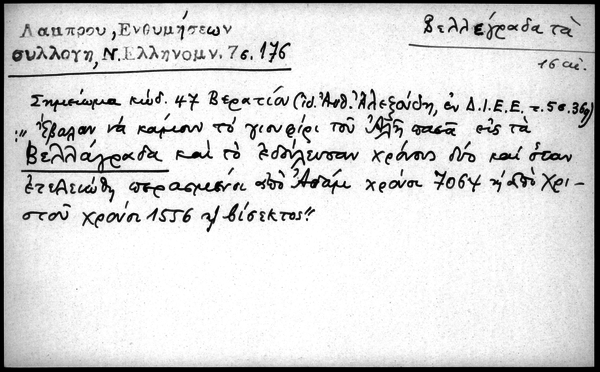 Λαμπρου, Ενθυμήσεων
συλλογη, Ν. Ελληνομν. 7 σ. 176
Βελλέγραδα τὰ
16 αἰ.
Σημείωμα κώδ. 47 Βερατίου (ἰδ. Ἀνθ. Ἀλεξούδη, ἐν Δ.Ι.Ε.Ε. τ. 5 σ. 369)
:" Ἔβαλαν νὰ κάμουν τὸ γιοφίρι τοῦ Ἀλῆ πασᾶ εἰς τὰ
Βελλάγραδα καὶ τὸ ἐδούλευσαν χρόνους δύο καὶ ὅταν
ἐτελειώθη περασμένοι ἀπὸ Ἀδὰμ χρόνοι 7064 ἡ ἀπὸ Χρι-
στοῦ χρόνοι 1556 ἡ βίσεκτος"